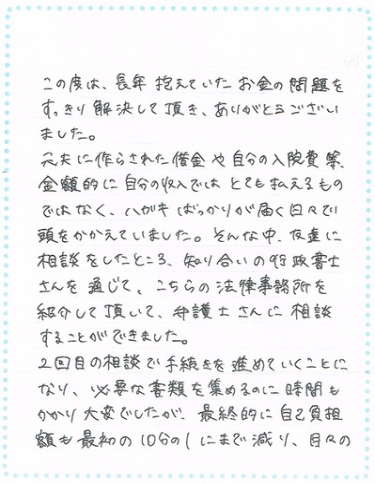 この度は、長年抱えていたお金の問題を
すっきり解決して頂き、ありがとうござい
ました。
元夫に作らされた借金や自分の入院費等、
金額的に自分の収入ではとても払えるもの
ではなく、ハガキばっかりが届く日々で
頭をかかえていました。そんな中、友達に
相談をしたところ、知り合いの行政書士
さんを通じて、こちらの法律事務所を
紹介して頂いて、弁護士さんに相談
することができました。
2回目の相談で手続きを進めていくことに
なり、必要な書類を集めるのに時間も
かかり大変でしたが、最終的に自己負担
額も最初の10分の1にまで減り、日々の